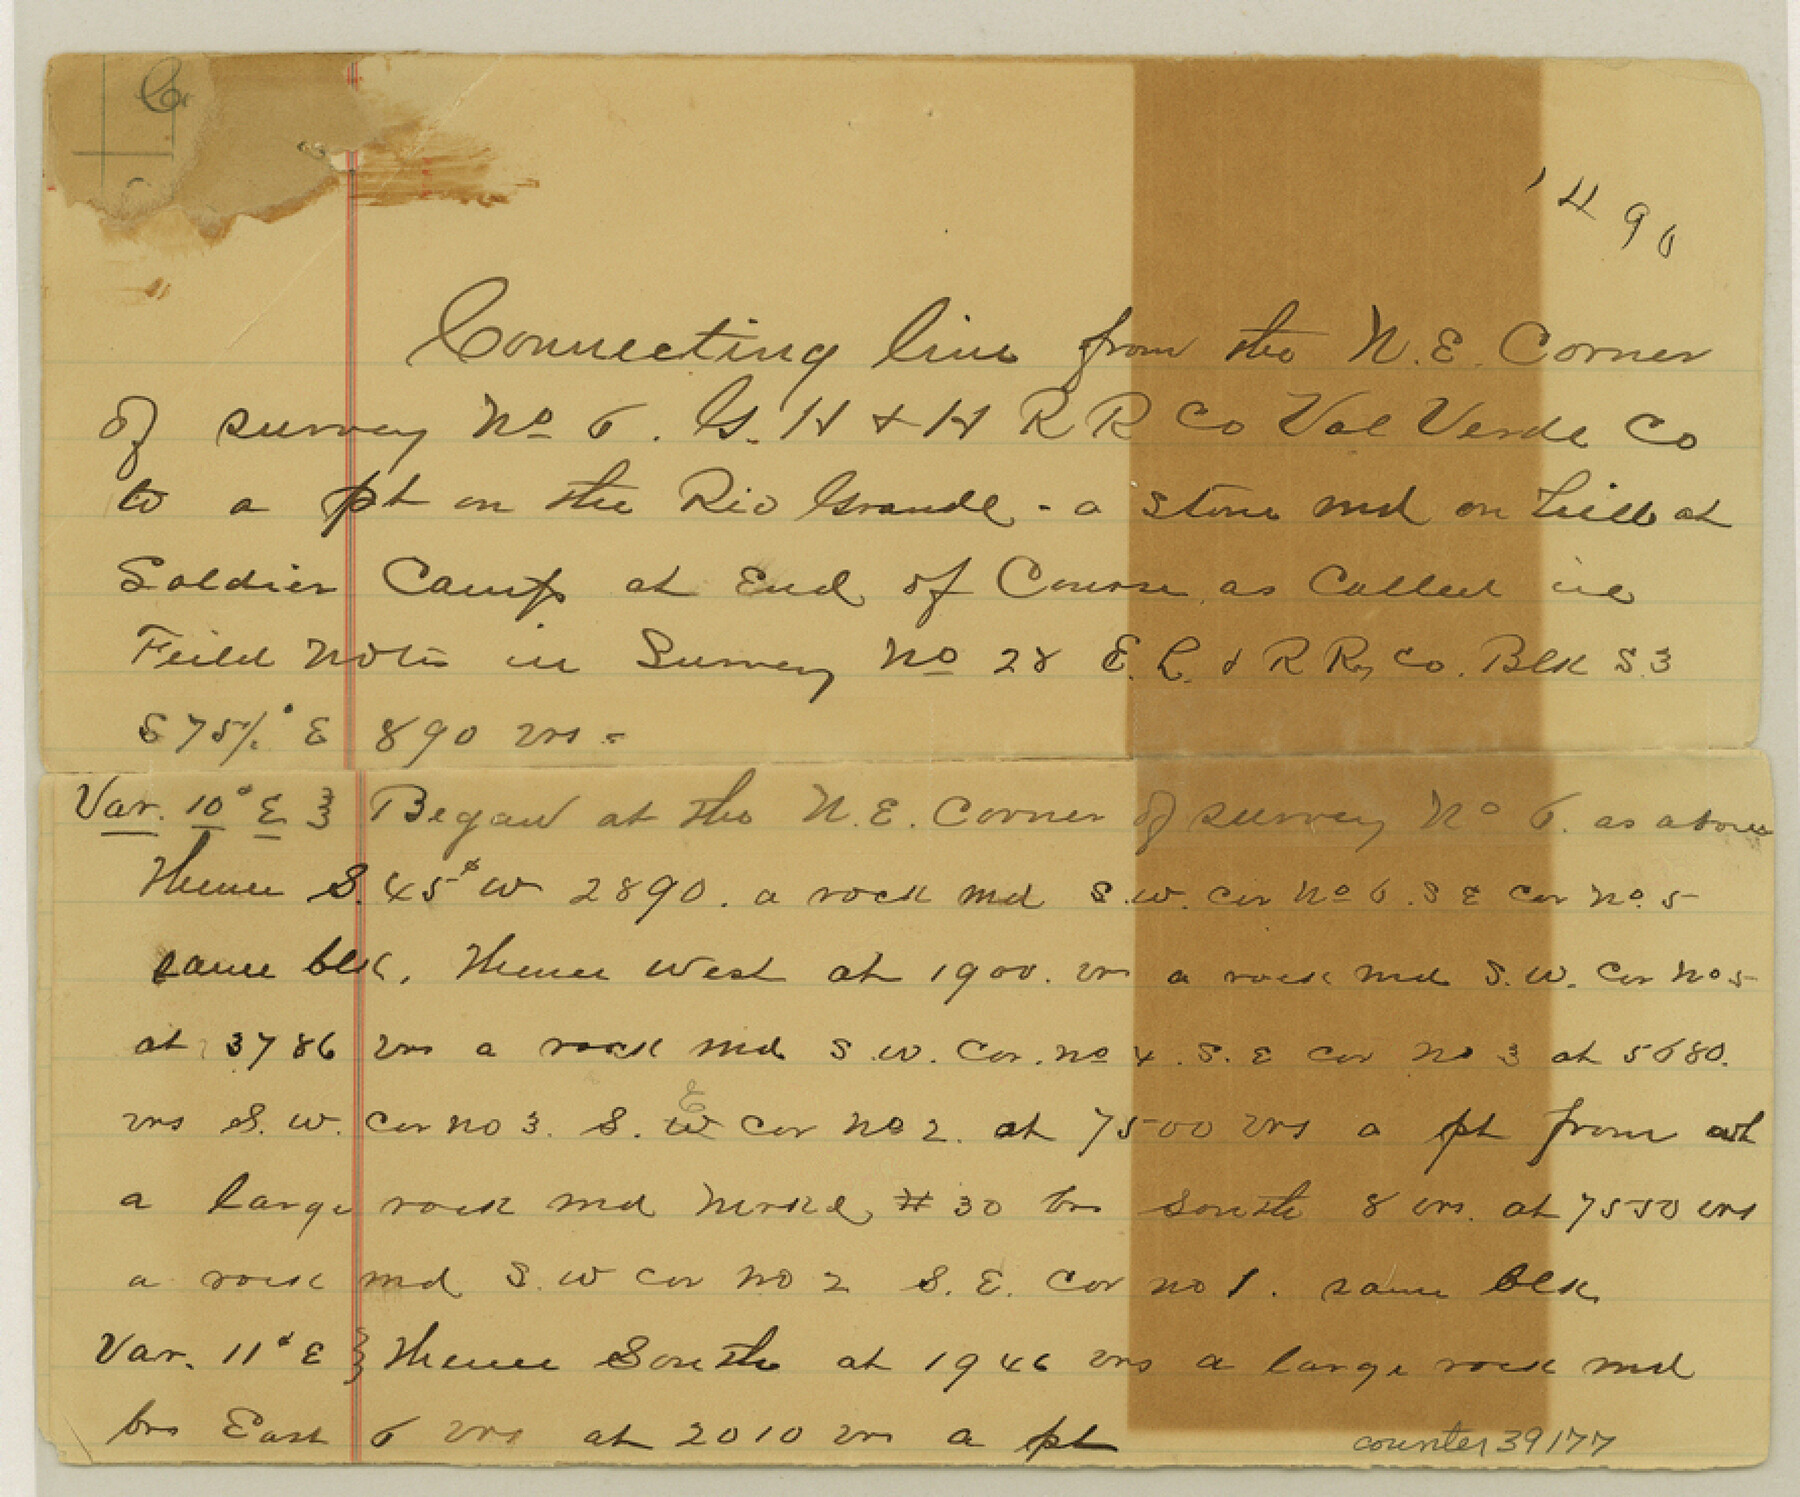 1490
Connecting line from the N.E. Corner
of survey No 6. G. H & H R R Co Val Verde Co
to a pt on the Rio Grande - a stone md on hill at
Soldier Camp at End of Course as Called in
Feild Notes in Survey No 28 E. L. & R Ry Co. Blk S.3
S 75½° E 890 vrs -
Var. 10° E } Began at the N.E. Corner of survey No 6. as above
Thence S. 45° W 2890. a rock md S.W. Cor No 6. S E Cor No. 5
same blk. Thence West at 1900. vrs a rock md S.W. Cor No 5
at 3786 vrs a rock md S.W. Cor. No 4. S. E Cor No 3 at 5680.
E
vrs S.W. Cor No 3. S. W Cor No 2. at 7500 vrs a pt from wh
a large rock md Mrkd # 30 brs South 8 vrs. at 7550 vrs
a rock md S.W Cor No 2 S.E. Cor No 1. same blk
Var. 11° E } Thence South at 1946 vrs a large rock md
brs East 6 vrs at 2010 vrs a pt
counter 39177